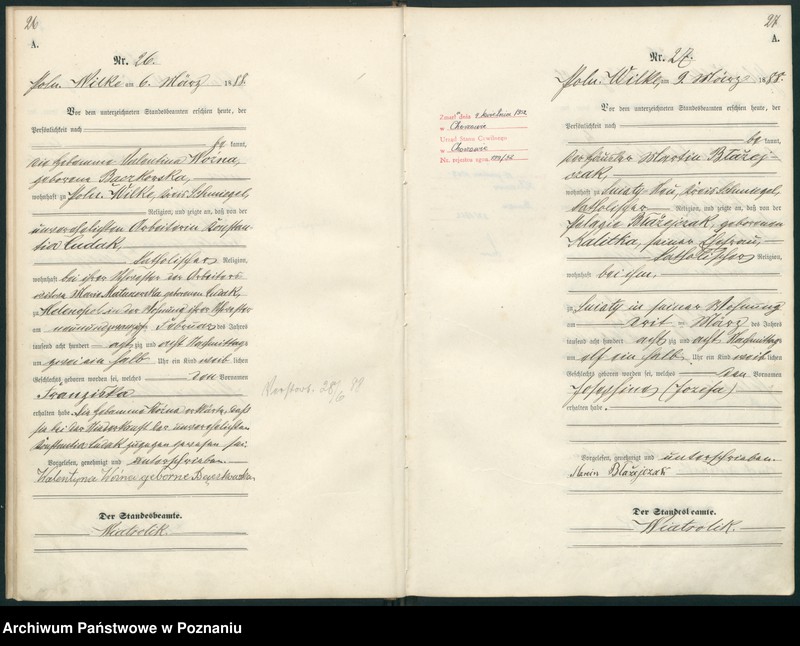 26
A.
Nr. 26.
Poln. Wilke am 6. März 1888.
Vor dem unterzeichneten Standesbeamten erschien heute, der
Persönlichkeit nach
be kannt,
die Hebamme Valentina Woźna,
geborene
wohnhaft zu Poln. Wilke, Kreis Schmiegel,
Religion, und zeigte an, daß von der
unverehelichten Arbeiterin Konstan-
tia Ludak
katholischer Religion,
wohnhaft bei ihrer der Arbeiter
Maria geborenen Ludak,
zu in der Wohnung ihrer
am Februar des Jahres
tausend acht hundert achtzig und acht Nachmittags
um ein halb Uhr ein Kind weiblichen
Geschlechts geboren worden sei, welches den Vornamen
Franziska
erhalten habe. Die Hebamme Woźna erklärte, daß
sie bei der Niederkunft der unverehelichten
Konstantia Ludak zugegen gewesen sei.
Vorgelesen, genehmigt und unterschrieben.
Walentyna Woźna geborne
Der Standesbeamte.
Wiatrolik.
Verstorb. 28/6 99
27
A.
Nr. 27.
Poln. Wilke, am 9. März 1888.
Vor dem unterzeichneten Standesbeamten erschien heute, der
Persönlichkeit nach
be kannt,
der Häusler Martin Błażej-
czak,
wohnhaft zu Sniaty Kreis Schmiegel,
katholischer Religion, und zeigte an, daß von der
Pelagia Błażejczak, geborenen
Kalitka, seiner Ehefrau,
katholischer Religion,
wohnhaft bei ihm,
zu Sniaty in seiner Wohnung
am März des Jahres
tausend acht hundert achtzig und acht Nachmittags
um elf ein halb Uhr ein Kind weiblichen
Geschlechts geboren worden sei, welches den Vornamen
Josephina (Jozefa)
erhalten habe.
Vorgelesen, genehmigt und unterschrieben.
Marcin Błażejczak
Der Standesbeamte.
Wiatrolik.
Zmarł dnia kwietnia
w
Urząd Stanu Cywilnego
w
Nr. rejestru zgon.
Archiwum Państwowe w Poznaniu